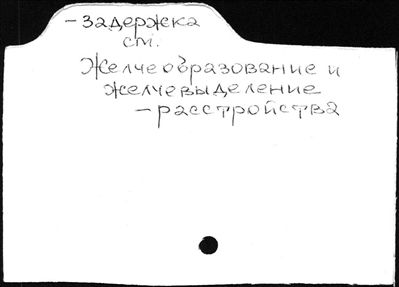 - Задержка
см.
Желчеобразование и
желчевыделение
- расстройства